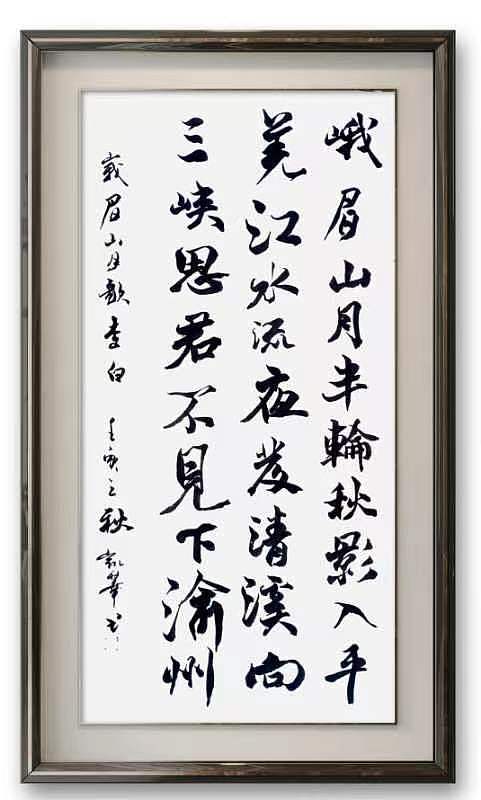 峨眉山月半輪秋影入平
羌江水流夜发清溪向
三峡思君不見下渝州
峨眉山月歌李白 之秋